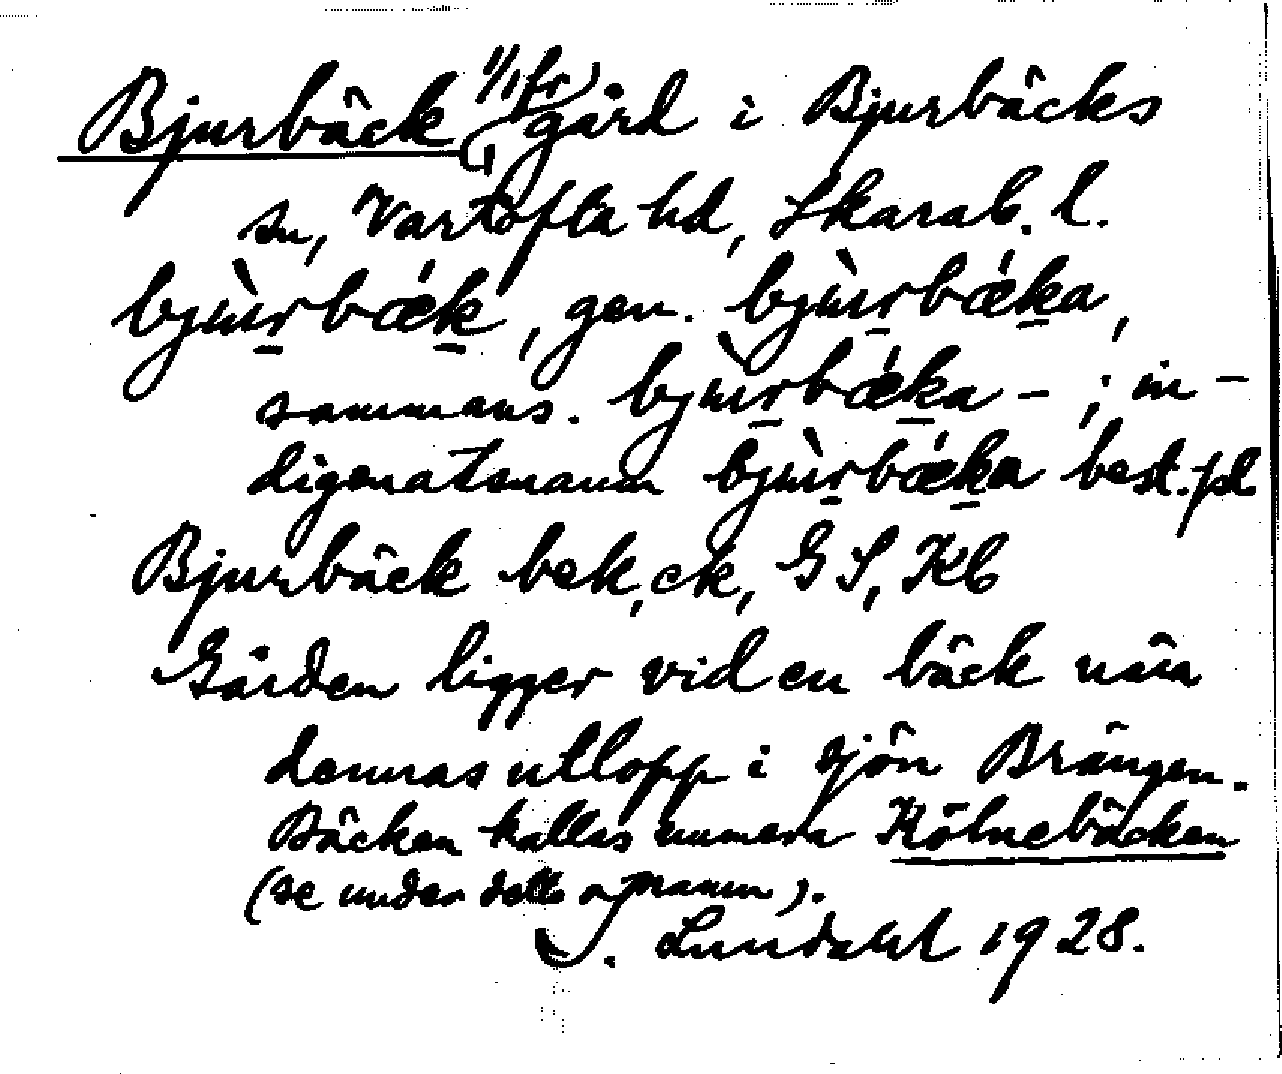 Bjurbäck 1/1 fr, gård i Bjurbäcks
sn, Vartofta hd, Skarab. l.
bjùrbǽk, gen. bjùrbǽka,
sammans. bjùrbǽka-; in-
digenatsnamn bjùrbǽka best. pl
Bjurbäck bek, ck, GS, Kb
Gården ligger vid en bäck nära
dennas utlopp i sjön Brängen.
Bäcken kallas numera Kölnebäcken
(se under detta namn).
J. Lundahl 1928.